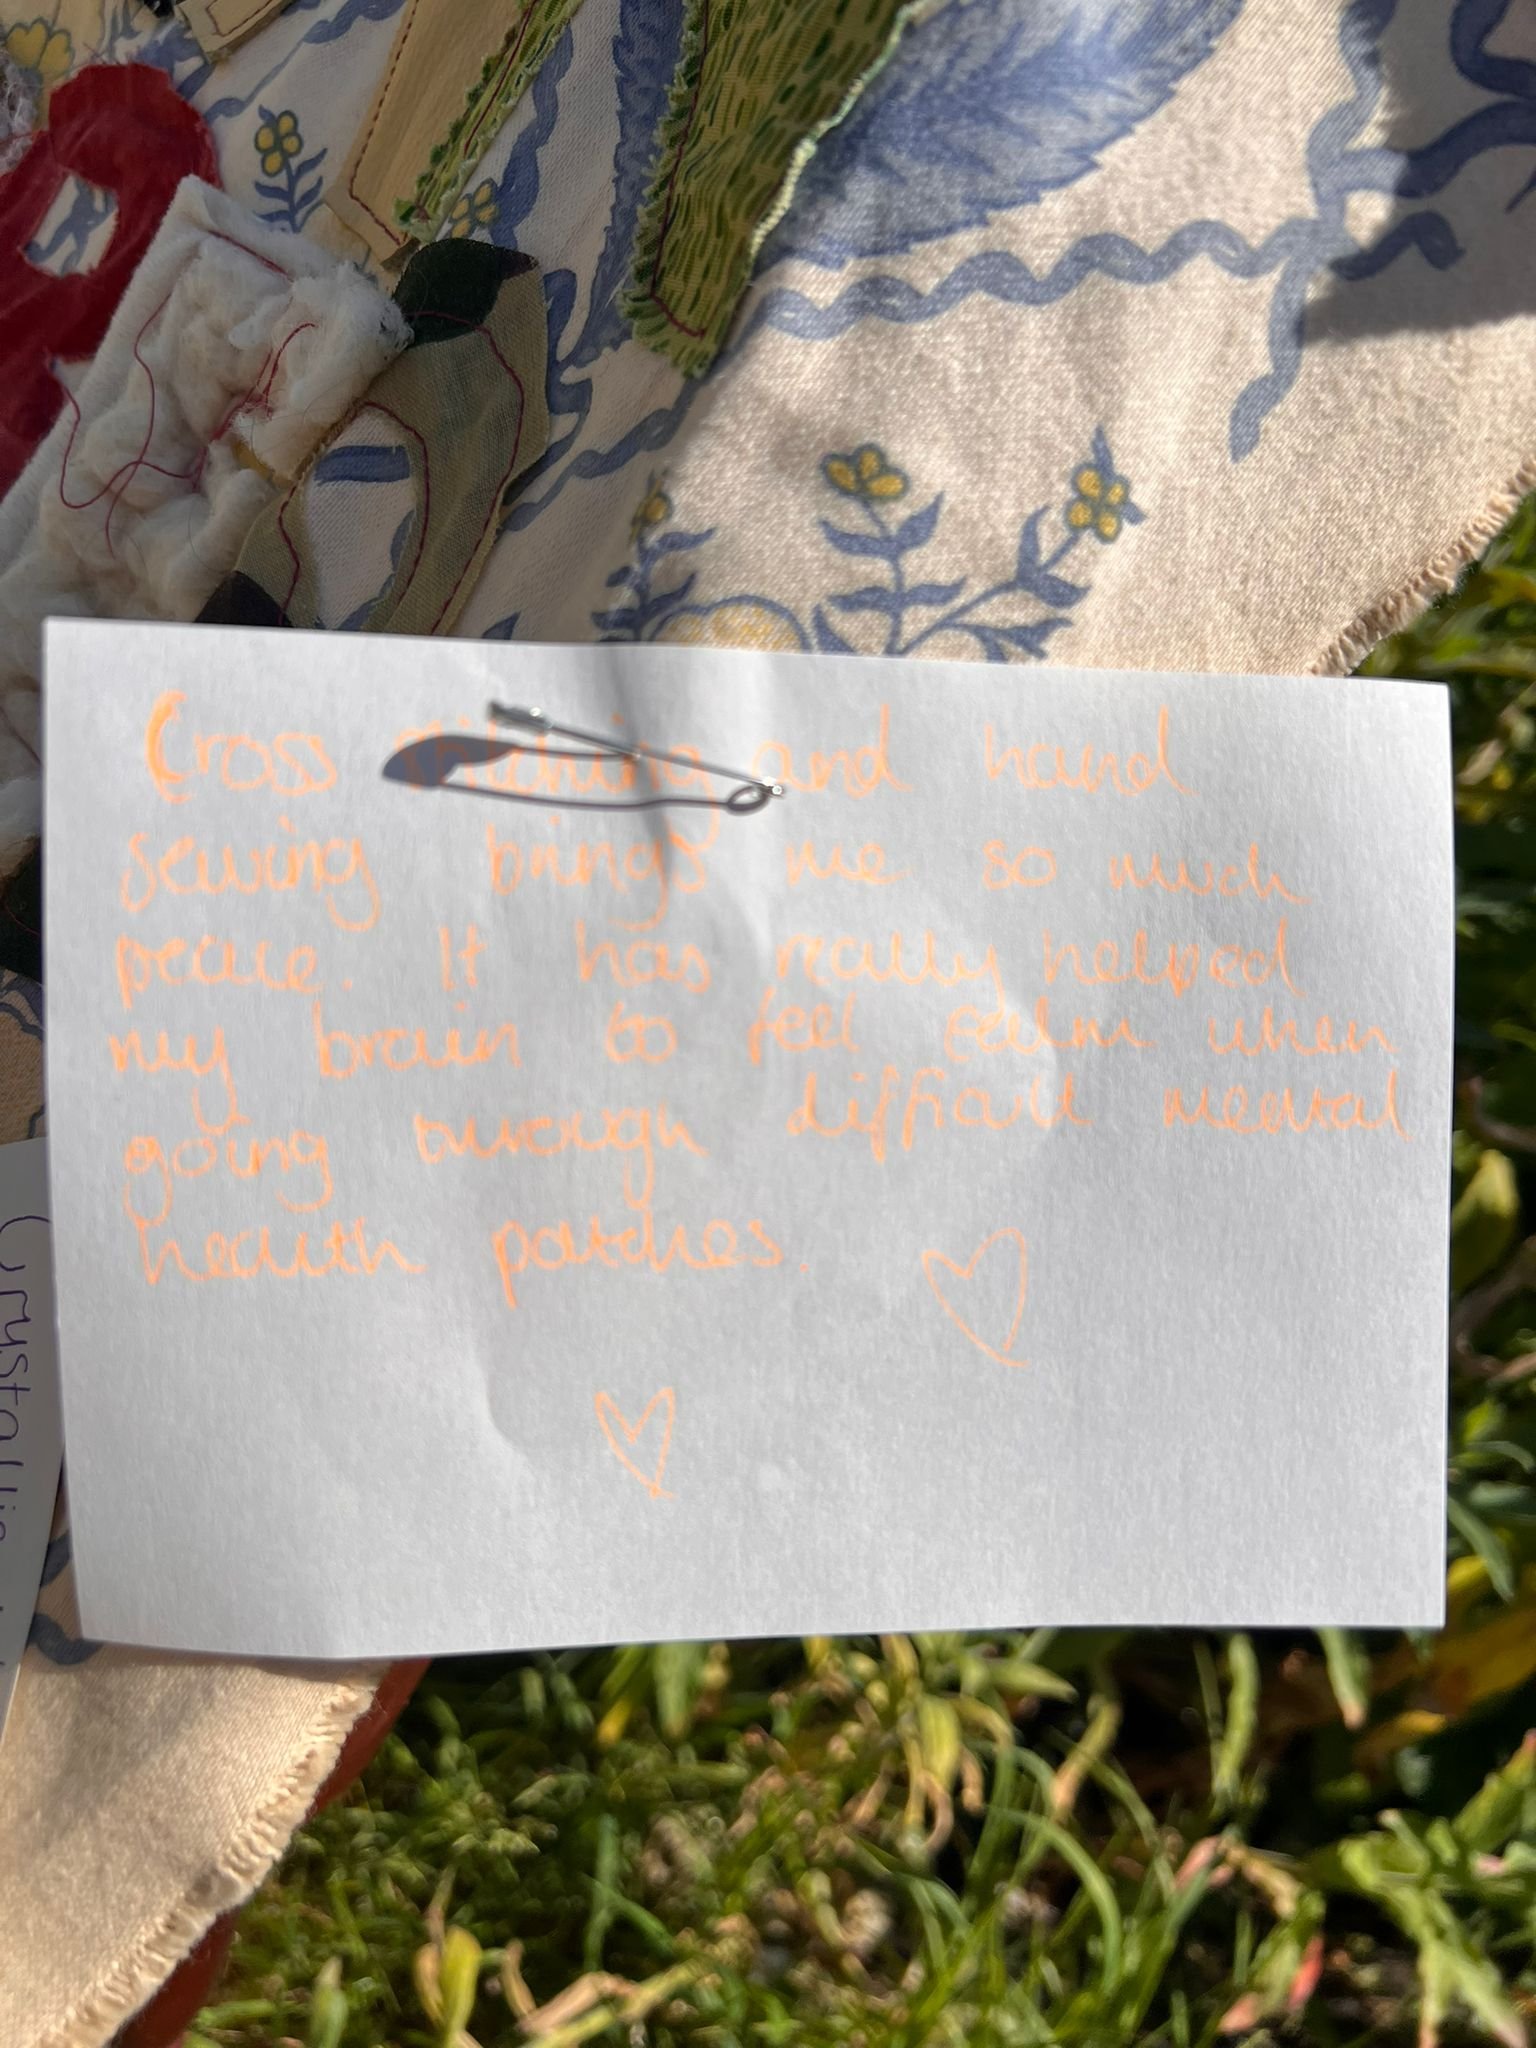 Cross stitching and hand
sewing brings me so much
peace. It has really helped
my brain to feel calm when
going through difficult mental
health patches.